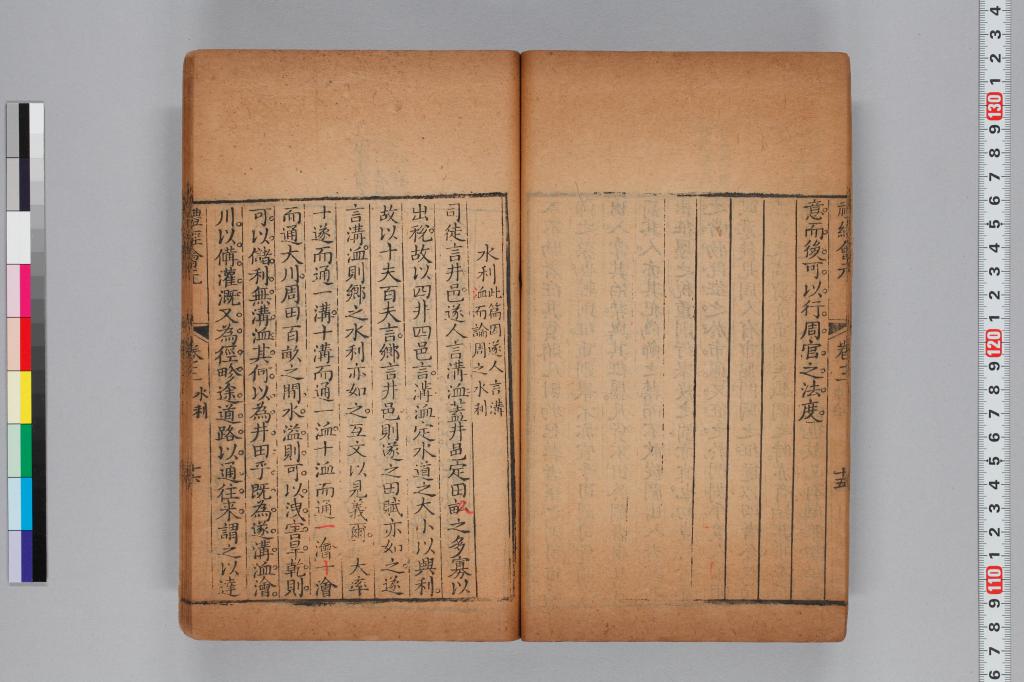 禮經會元
卷三
十五
意而後可以行周官之法度
水利此篇因遂人言溝
洫而論周之水利
司徒言井邑遂人言溝洫蓋井邑定田畝之多寡以
出稅故以四井四邑言溝洫定水道之大小以興利
故以十夫百夫言鄉言井邑則遂之田賦亦如之遂
言溝洫則鄉之水利亦如之互文以見義爾大率
十遂而通一溝十溝而通一洫十洫而通一澮十澮
而通大川周田百畝之間水溢則可以洩害旱乾則
可以儲利無溝洫其何以為井田乎既為遂溝洫澮
川以備灌溉又為徑畛途道路以通往來謂之以達
禮經會元
卷三
水利